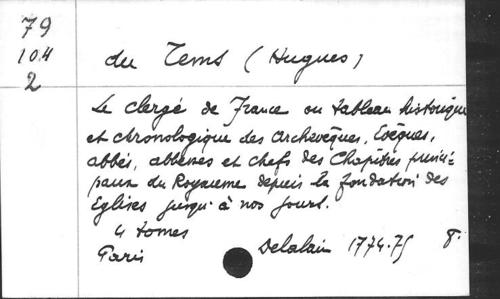 79
104
2
du Tems (Hugues)
Le clergé de France ou tableau historique
et chronologique des archevêques, Evêques,
abbés, abbesses et chefs des Chapitres princi-
paux du Royaume depuis la fondation des
Eglises jusqu'à nos jours.
4 tomes
Paris Delalain 1774-75 8°